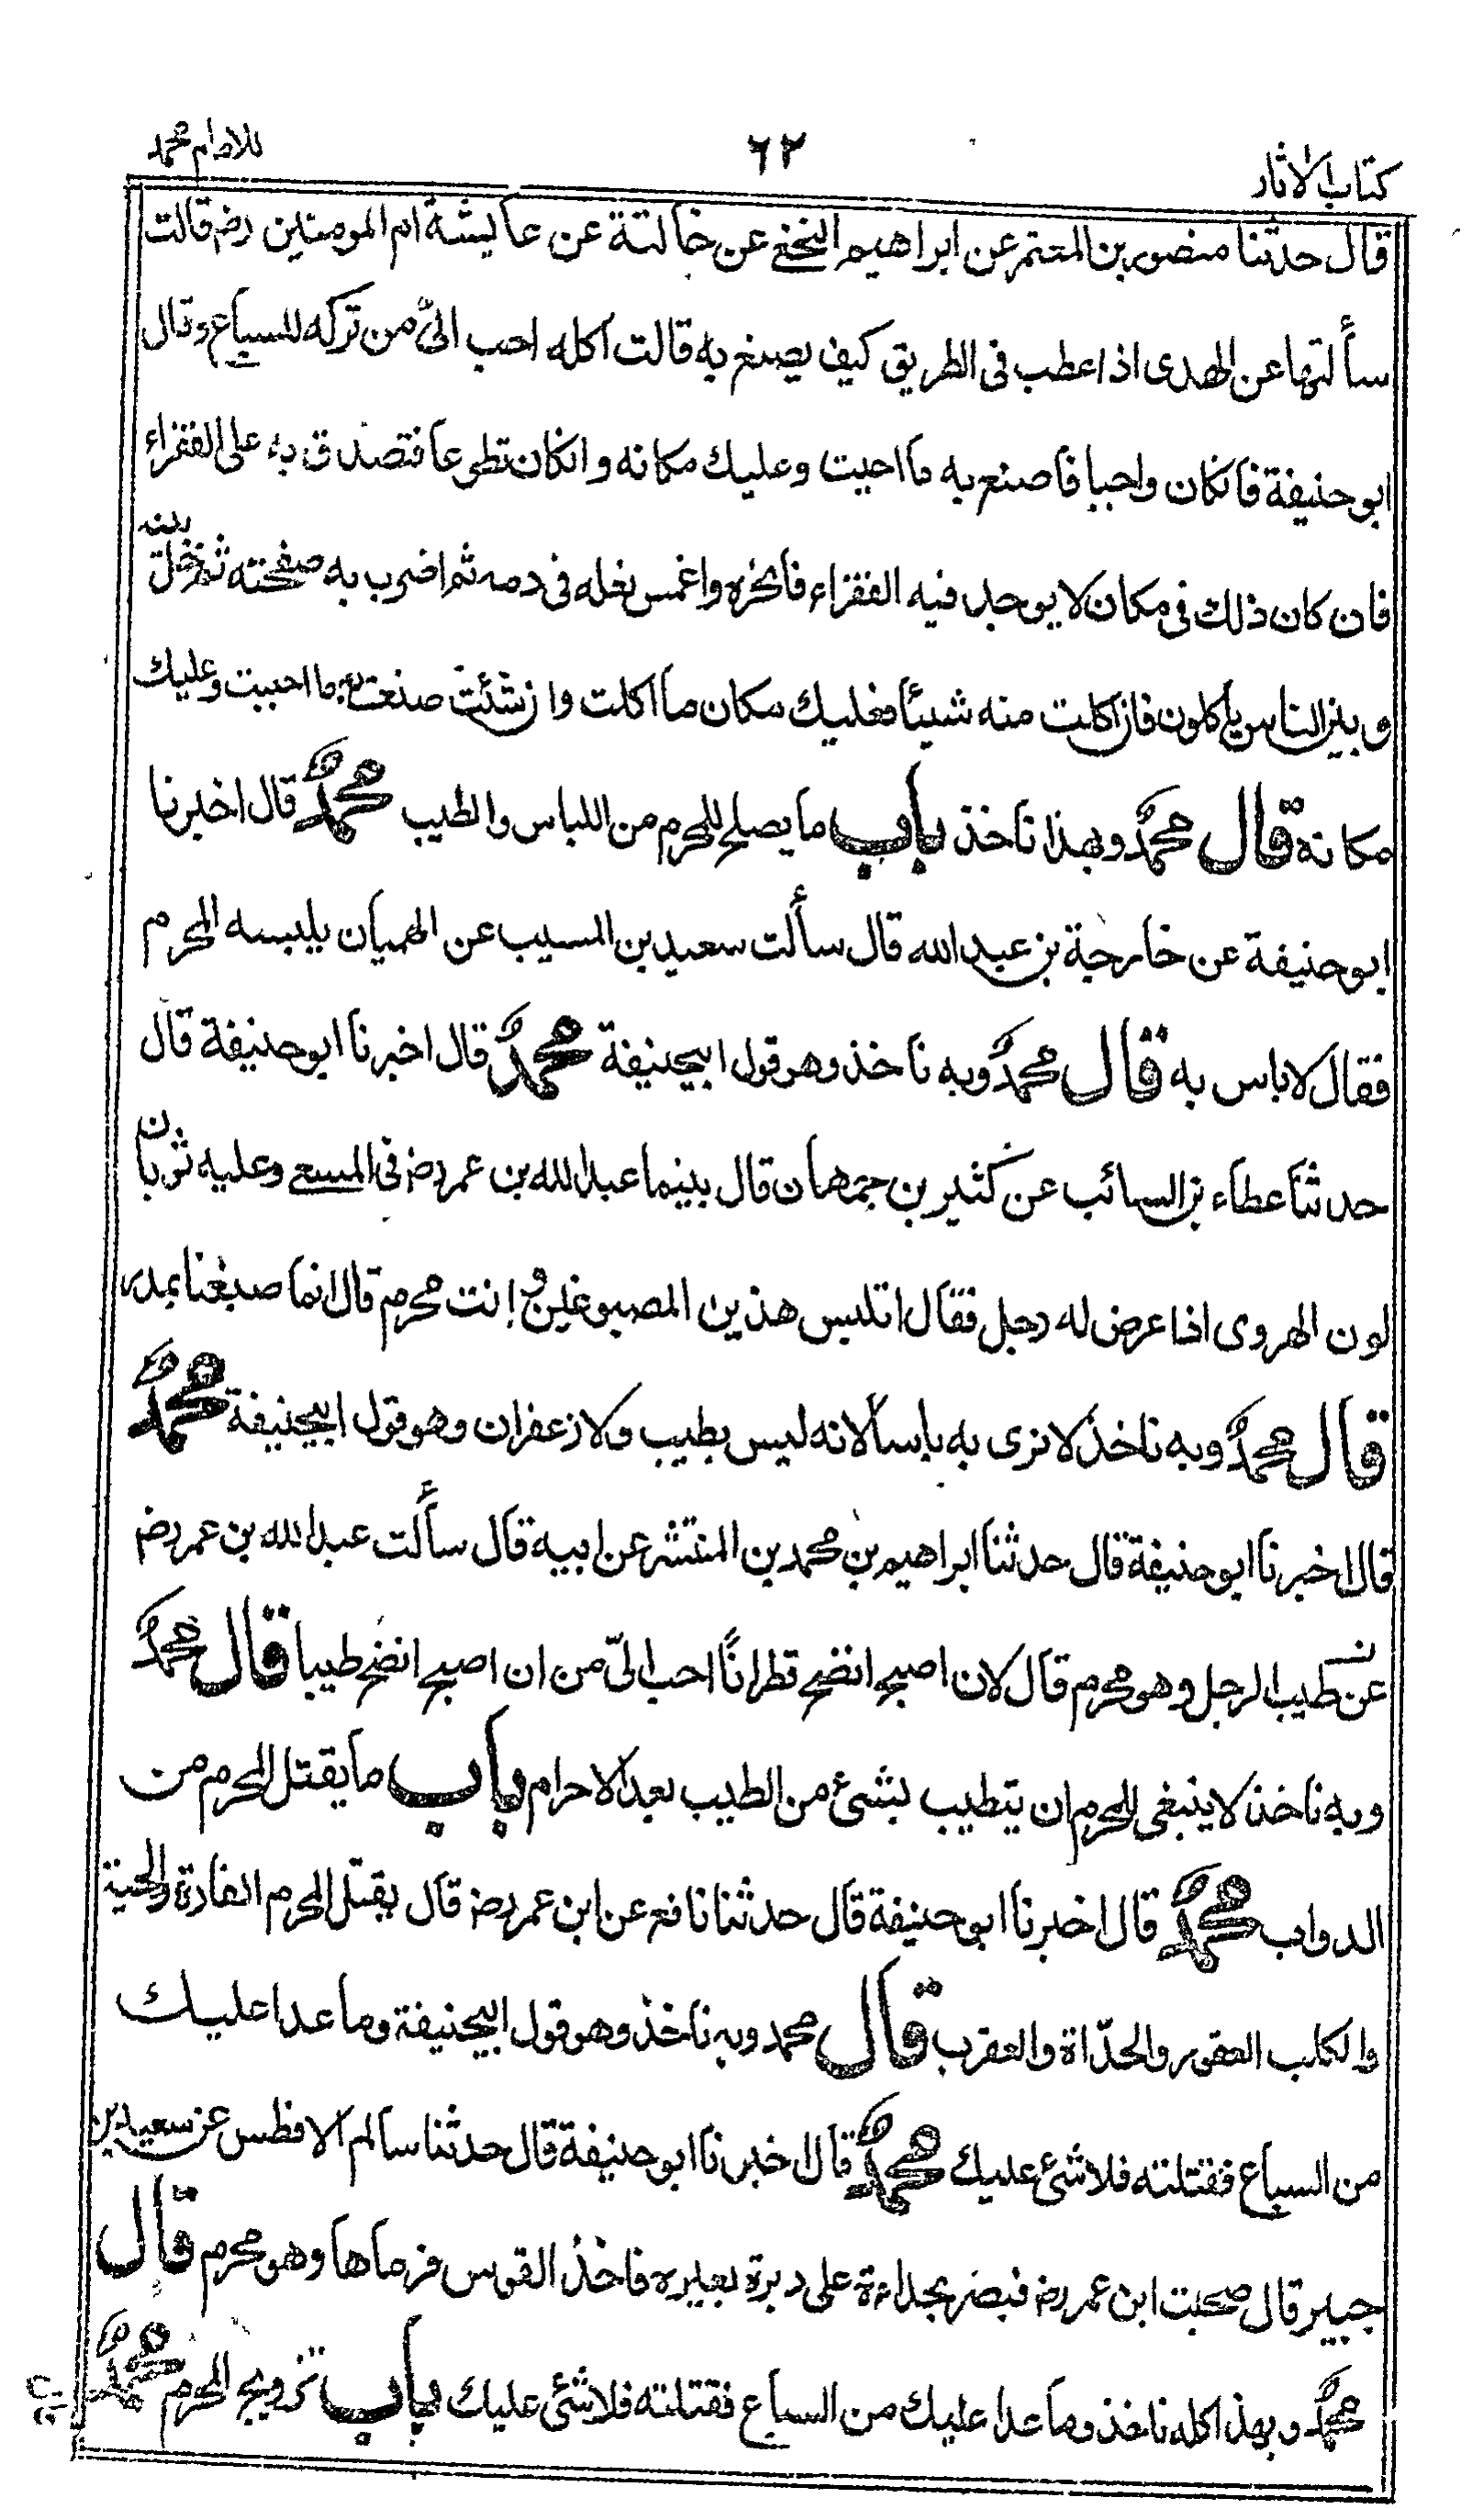 كتاب الاثار ٦٢ للامام محمد
قال حدثنا منصور بن المعتمر عن ابراهيم النخعي عن خالتة عن عايشة ام المومنين رضـ قالت
سألتها عن الهدى اذا عطب فى الطريق كيف يصنع به قالت اكله احب الىّ من تركه للسباع وقال
ابوحنيفة فانكان واجبا فاصنع به ما احببت وعليك مكانه وانكان تطوعا فتصدق به على الفقراء
فان كان ذلك فى مكان لا يوجد فيه الفقراء فانحره واغمس نعله فى دمه ثم اضرب به صفحته ثم خل بينه
وبين الناس ياكلون فان اكلت منه شيئا فعليك مكان ما اكلت وان شئت صنعت به ما احببت وعليك
مكانه قال محمد وبهذا ناخذ باب ما يصلح للمحرم من اللباس والطيب محمد قال اخبرنا
ابوحنيفة عن خارجة بن عبد الله قال سألت سعيد بن المسيب عن الهميان يلبسه المحرم
فقال لاباس به قال محمد وبه ناخذ وهو قول ابيحنيفة محمد قال اخبرنا ابوحنيفة قال
حدثنا عطاء بن السائب عن كثير بن جمهان قال بينما عبد الله بن عمر رضـ فى المسعى وعليه ثوبان
لون الهروى اذا عرض له رجل فقال اتلبس هذين المصبوغين وانت محرم قال انما صبغنا بمدر
قال محمد وبه ناخذ لا نرى به باسا لانه ليس بطيب ولا زعفران وهو قول ابيحنيفة محمد
قال اخبرنا ابوحنيفة قال حدثنا ابراهيم بن محمد بن المنتشر عن ابيه قال سألت عبد الله بن عمر رضـ
عن طيب الرجل وهو محرم قال لان اصبح انضح قطرانًا احب الىّ من ان اصبح انضح طيبا قال محمد
وبه ناخذ لا ينبغى للمحرم ان يتطيب بشئ من الطيب بعد الاحرام باب ما يقتل المحرم من
الدواب محمد قال اخبرنا ابوحنيفة قال حدثنا نافع عن ابن عمر رضـ قال يقتل المحرم الفارة والحية
والكلب العقور والحدّاة والعقرب قال محمد وبه ناخذ وهو قول ابيحنيفة وما عدا عليك
من السباع فقتلته فلا شئ عليك محمد قال اخبرنا ابوحنيفة قال حدثنا سالم الافطس عن سعيد بن
جبير قال صحبت ابن عمر رضـ فبصر بحداءة على دبرة بعيره فاخذ القوس فرماها وهو محرم قال
محمد وبهذا كله ناخذ وما عدا عليك من السباع فقتلته فلا شئ عليك باب تزويج المحرم محمد